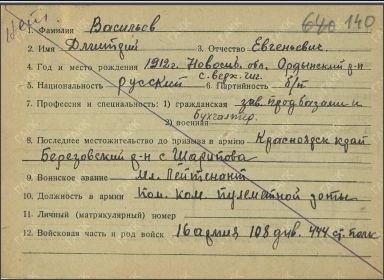 Нет.
640 140
1. Фамилия Васильев
2. Имя Дмитрий 3. Отчество Евгеньевич.
4. Год и место рождения 1912г. Новосиб. обл. Ордынский р-н
с. верх-чик.
5. Национальность русский 6. Партийность б/п
7. Профессия и специальность: 1) гражданская зав. продбазами и
бухгалтер.
2) военная
8. Последнее местожительство до призыва в армию Красноярск край
Березовский р-н с Шарыпова
9. Воинское звание Мл. Лейтенант
10. Должность в армии пом. ком. пулеметной роты
11. Личный (матрикулярный) номер
12. Войсковая часть и род войск 16 армия 108 див. 444 стр полк